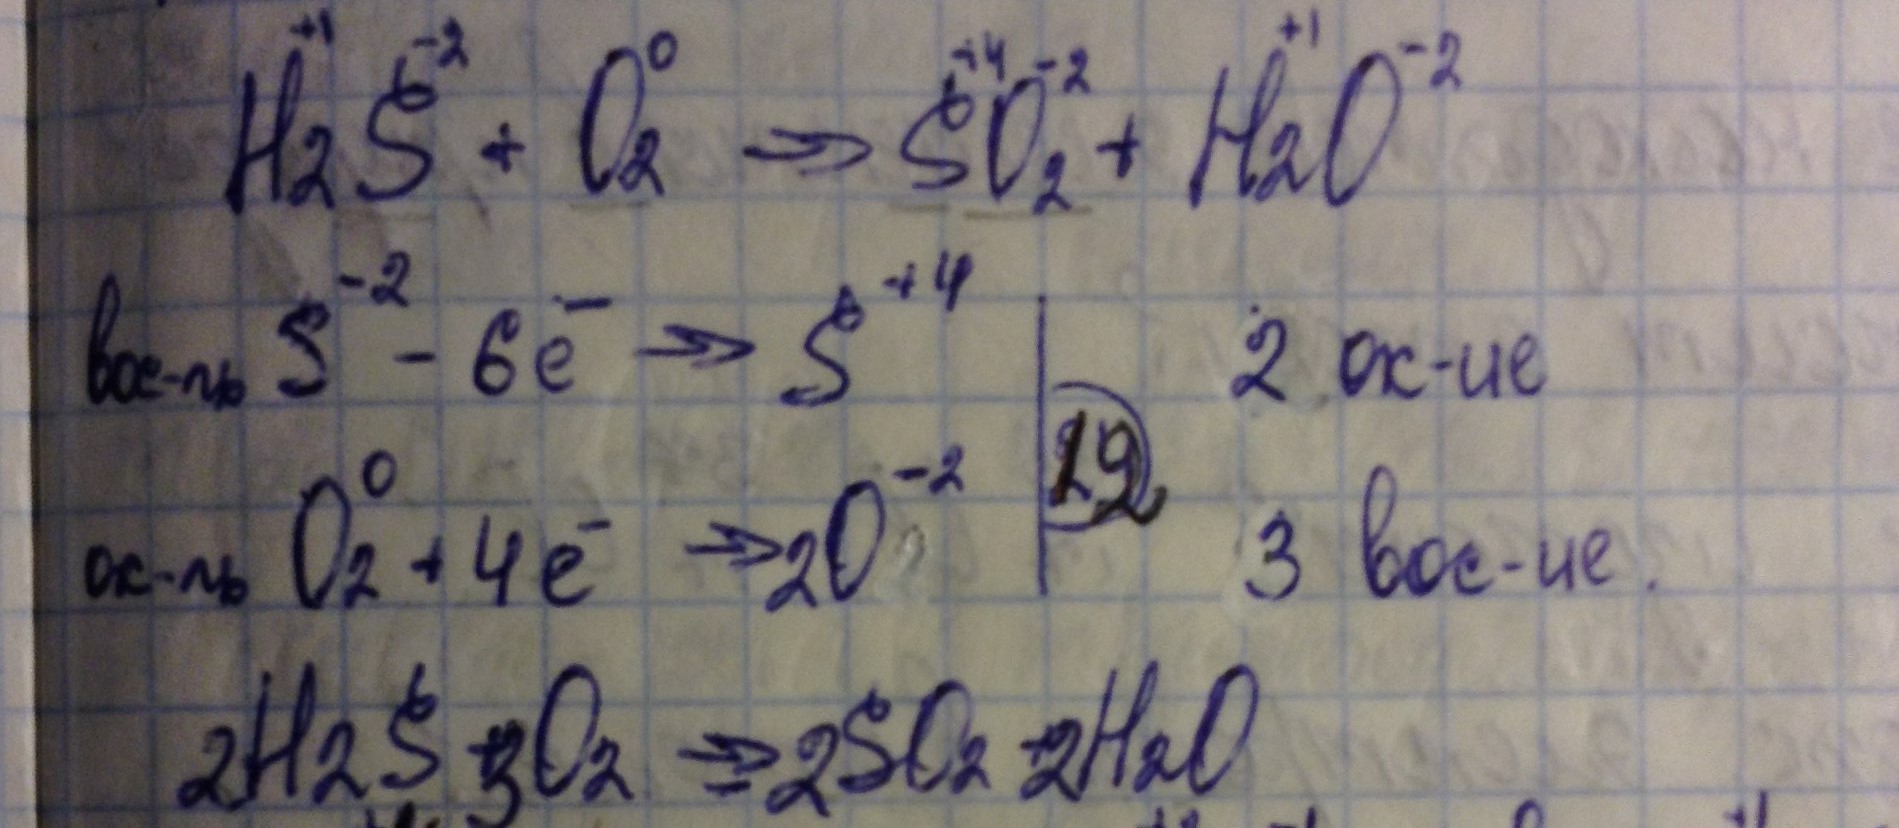 H₂⁺¹S⁻² + O₂⁰ → S⁺⁴O₂⁻² + H₂⁺¹O⁻²
вос-ль S⁻² - 6e⁻ → S⁺⁴ | 2 ок-ие
12
ок-ль O₂⁰ + 4e⁻ → 2O⁻² | 3 вос-ие.
2H₂S + 3O₂ → 2SO₂ + 2H₂O